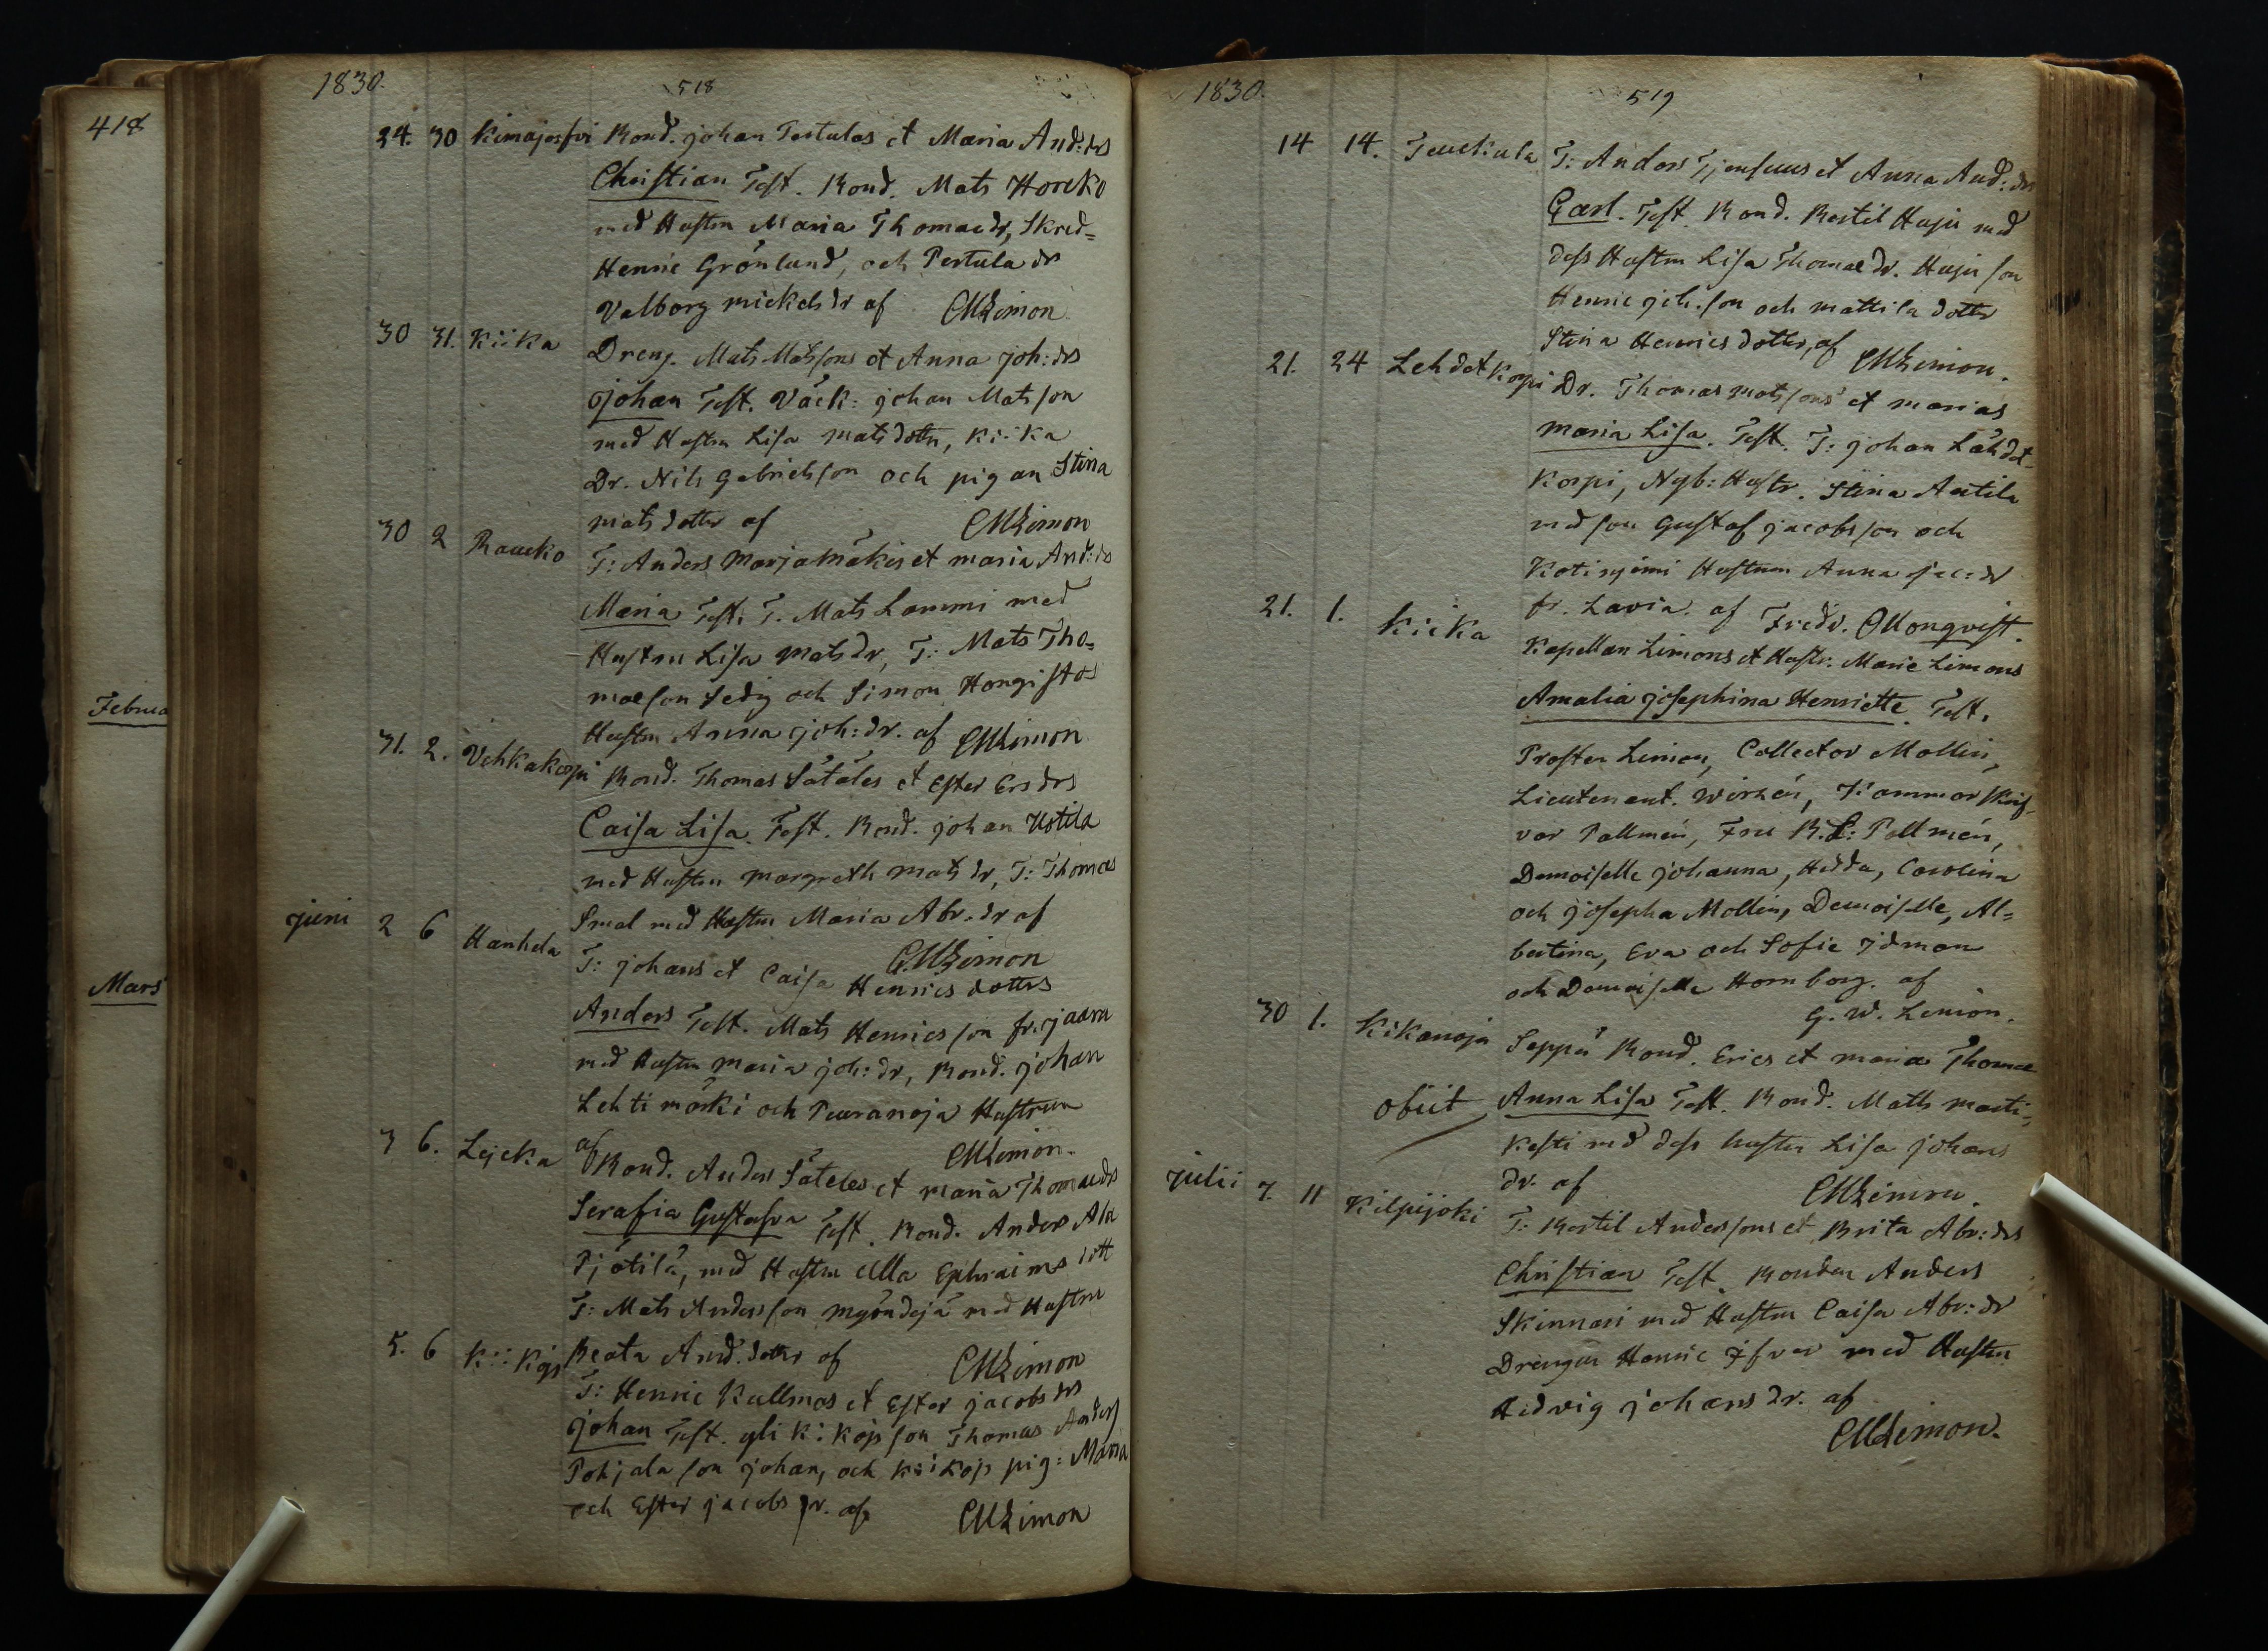 418
Februa
Mars
1830.
518
24. 30 Kimajärfvi Bond. Johan Pertulas et Maria And:drs
Christian Test. Bond. Mats Horcko
med Hustru Maria Thomaedr, Skred=
Henric Grönlund, och Pertula dr
Valborg mickelsdr af CMLimon
30 31. Kiika Dreng. Mats Matssons et Anna Joh:drs
Johan Test. Väck: Johan Matsson
med Hustru Lisa matsdotter, Kiika
Dr. Nils Gabrielsson och pigan Stina
mats dotter af CMLimon
30 2 Raucko T: Anders Marjamäkis et maria And:drs
Maria Test: T. Mats Lammi med
Hustru Lisa matsdr, T: Mats Tho=
maeson Sedig och Simon Hongistos
Hustru Anna Joh:dr. af CMLimon
31. 2. Vehkakorpi Bond. Thomas Sätäles et Ester Ersdrs
Caisa Lisa. Test. Bond. Johan Uotila
med Hustru margreth matsdr, T: Thomas
Smal med Hustru Maria Abr.dr af
CMLimon
Juni 2 6 Hanhela T: Johans et Caisa Henrics dotters
Anders Test. Mats Henricsson fr. Jaara
med Hustru maria Joh:dr, Bond. Johan
Lehtimäki och Peuranoja Hustrun
af CMLimon.
3 6. Lejcka Bond. Anders Säteles et maria Thomaedrs
Serafia Gustafva Test. Bond. Anders Ala
Pjötilä, med Hustru Ulla Ephraims dott
T: Mats Andersson myöndejä med Hustru
Beata And.dotter af CMLimon
5. 6 Kiikojs T: Henric Kullmas et Ester Jacobs drs
Johan Test. yli Kikojs son Thomas Anders
Pohjala son Johan, och Kiikojs pig: Maria
och Ester Jacobs dr. af CMLimon
1830.
519
14 14. Teuckula T: Anders et Anna And:drs
Carl. Test. Bond. Bertil Huju med
dess Hustru Lisa Thomaedr. Huju son
Henric Joh.son och mattila dotter
Stina Henrics dotter, af CMLimon.
21. 24 Lehdetkorpi Dr. Thomas matssons et marias
maria Lisa. Test. T: Johan Lähdet=
korpi, Nyb: Hustr. Stina Antila
med son Gustaf Jacobsson och
Kotiniemi Hustrun Anna Jac:dr
fr. Lavia. af Fredr. Monqvist.
21. 1. Kiika Kapellan Limons et Hustr. Marie Limons
Amalia Josephina Henriette. Test.
Prosten Limon, Collector Mollin,
Lieutenant. Wirzén, Kammarskrif=
var Pallmén, Fru B.L: Pallmén,
Demoiselle Johanna, Hedda, Carolina
och Josepha Mollin, Demoiselle, Al=
bertina, Eva och Sofie Idman
och Demoiselle Hornborg. af
G. W. Limon.
30 1. Kikanoja Seppä Bond. Erics et maria Thomae
obiit Anna Lisa Test. Bond. Matts marti=
kesti med dess hustru Lisa Johans
dr. af CMLimon.
Julii 7. 11 Kilpijoki T: Bertil Anderssons et Brita Abr:drs
Christian Test. Bonden Anders
Skinnari med Hustru Caisa Abr:dr
Drengen Henric Ifvar med Hustru
Hedvig Johansdr. af
CMLimon.